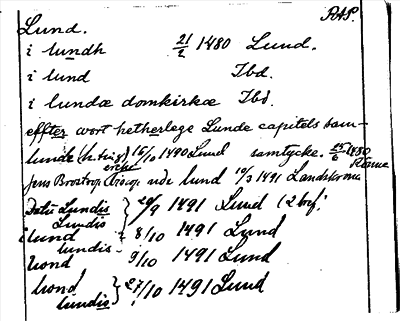 RAP.
Lund.
i lundh 21/2 1480 Lund.
i lund Ibd.
i lundæ domkirkæ Ibd.
effter wort hetherlege Lunde capitels sam-
lunde 15/10 1490 Lund samtycke. 1480
jens Brostrops ærche
biscops vdi lund 19/3 1491 Landskrona
Datu Lundis } 29/9 1491 Lund (2 bref)
Lundis
lund } 8/10 1491 Lund
lundis
lond 9/10 1491 Lund
lond } 27/10 1491 Lund
lundis